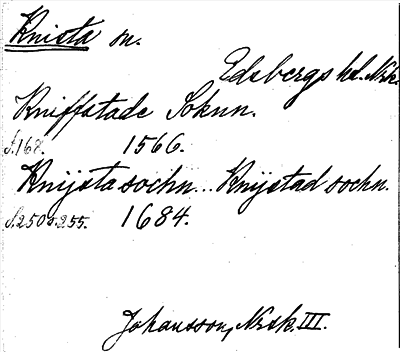 Knista sn.
Edsbergs hd. Nrk.
Kniffstade Soknn.
s.168. 1566.
Knijsta sochn... Knijstad sochn.
s.250 o. 255. 1684.
Johansson, Nrsk. III.